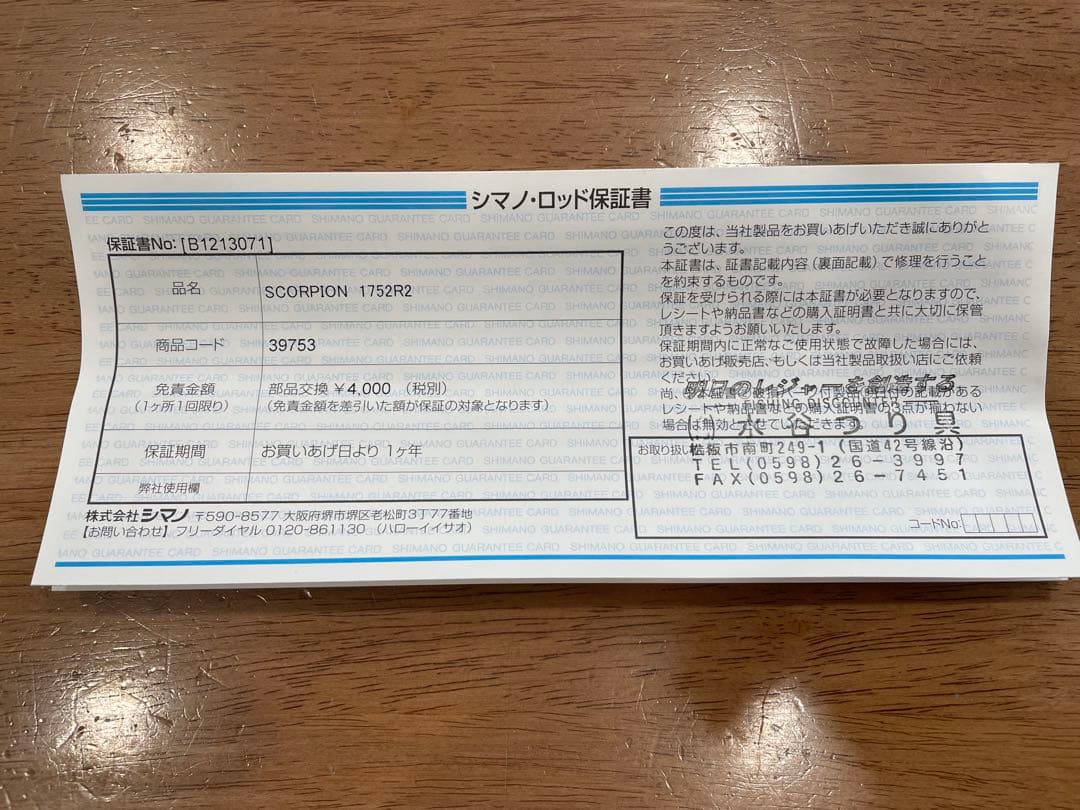 シマノ・ロッド保証書
保証書No: [B1213071]
品名 SCORPION 1752R2
商品コード 39753
免責金額 部品交換 ¥4,000 (税別)
(1ヶ所1回限り) (免責金額を差引いた額が保証の対象となります)
保証期間 お買いあげ日より 1ヶ年
弊社使用欄
株式会社シマノ 〒590-8577 大阪府堺市堺区老松町3丁77番地
【お問い合わせ】フリーダイヤル 0120-861130 (ハローイイサオ)
この度は、当社製品をお買いあげいただき誠にありがと
うございます。
本証書は、証書記載内容(裏面記載)で修理を行うこと
を約束するものです。
保証を受けられる際には本証書が必要となりますので、
レシートや納品書などの購入証明書と共に大切に保管
頂きますようお願いいたします。
保証期間内に正常なご使用状態で故障した場合には、
お買いあげ販売店、もしくは当社製品取扱い店にご依頼
ください。
明日のレジャーを創造する
レシートや納品書などの購入証明書の3点が揃わない
場合は無効とさせていただきます。
谷つり具
お取り扱い
松阪市南町249-1 (国道42号線沿)
TEL(0598)26-3997
FAX(0598)26-7451
コードNo:
SHIMANO GUARANTEE CARD